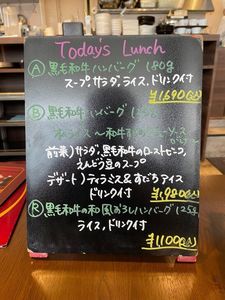 Today's Lunch
Ⓐ 黒毛和牛ハンバーグ 150g
スープ、サラダ、ライス、ドリンク付
¥1,690(込)
Ⓑ 黒毛和牛ハンバーグ
ライス 〜和牛 ソース
前菜)サラダ、黒毛和牛のローストビーフ、
えんどう豆のスープ
デザート)ティラミス&すだちアイス
ドリンク付
¥1,980(込)
Ⓡ 黒毛和牛の和風おろしハンバーグ 125g
ライス、ドリンク付
¥1100(込)